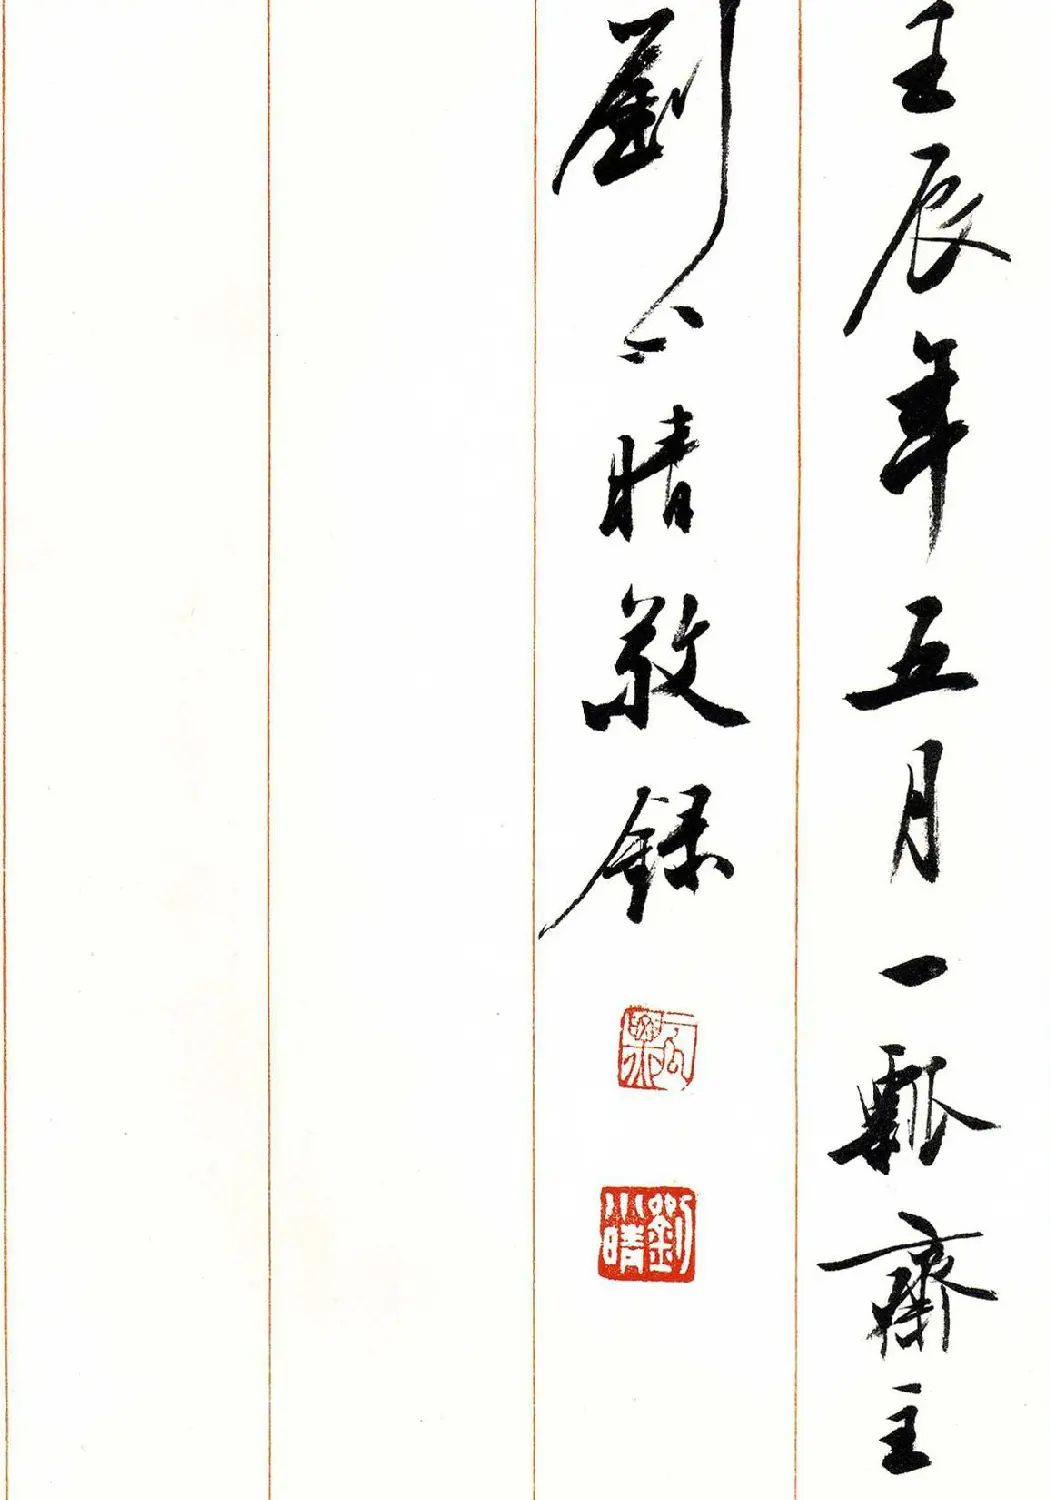 壬辰年五月一瓢齋主
劉小晴敬録
劉小晴